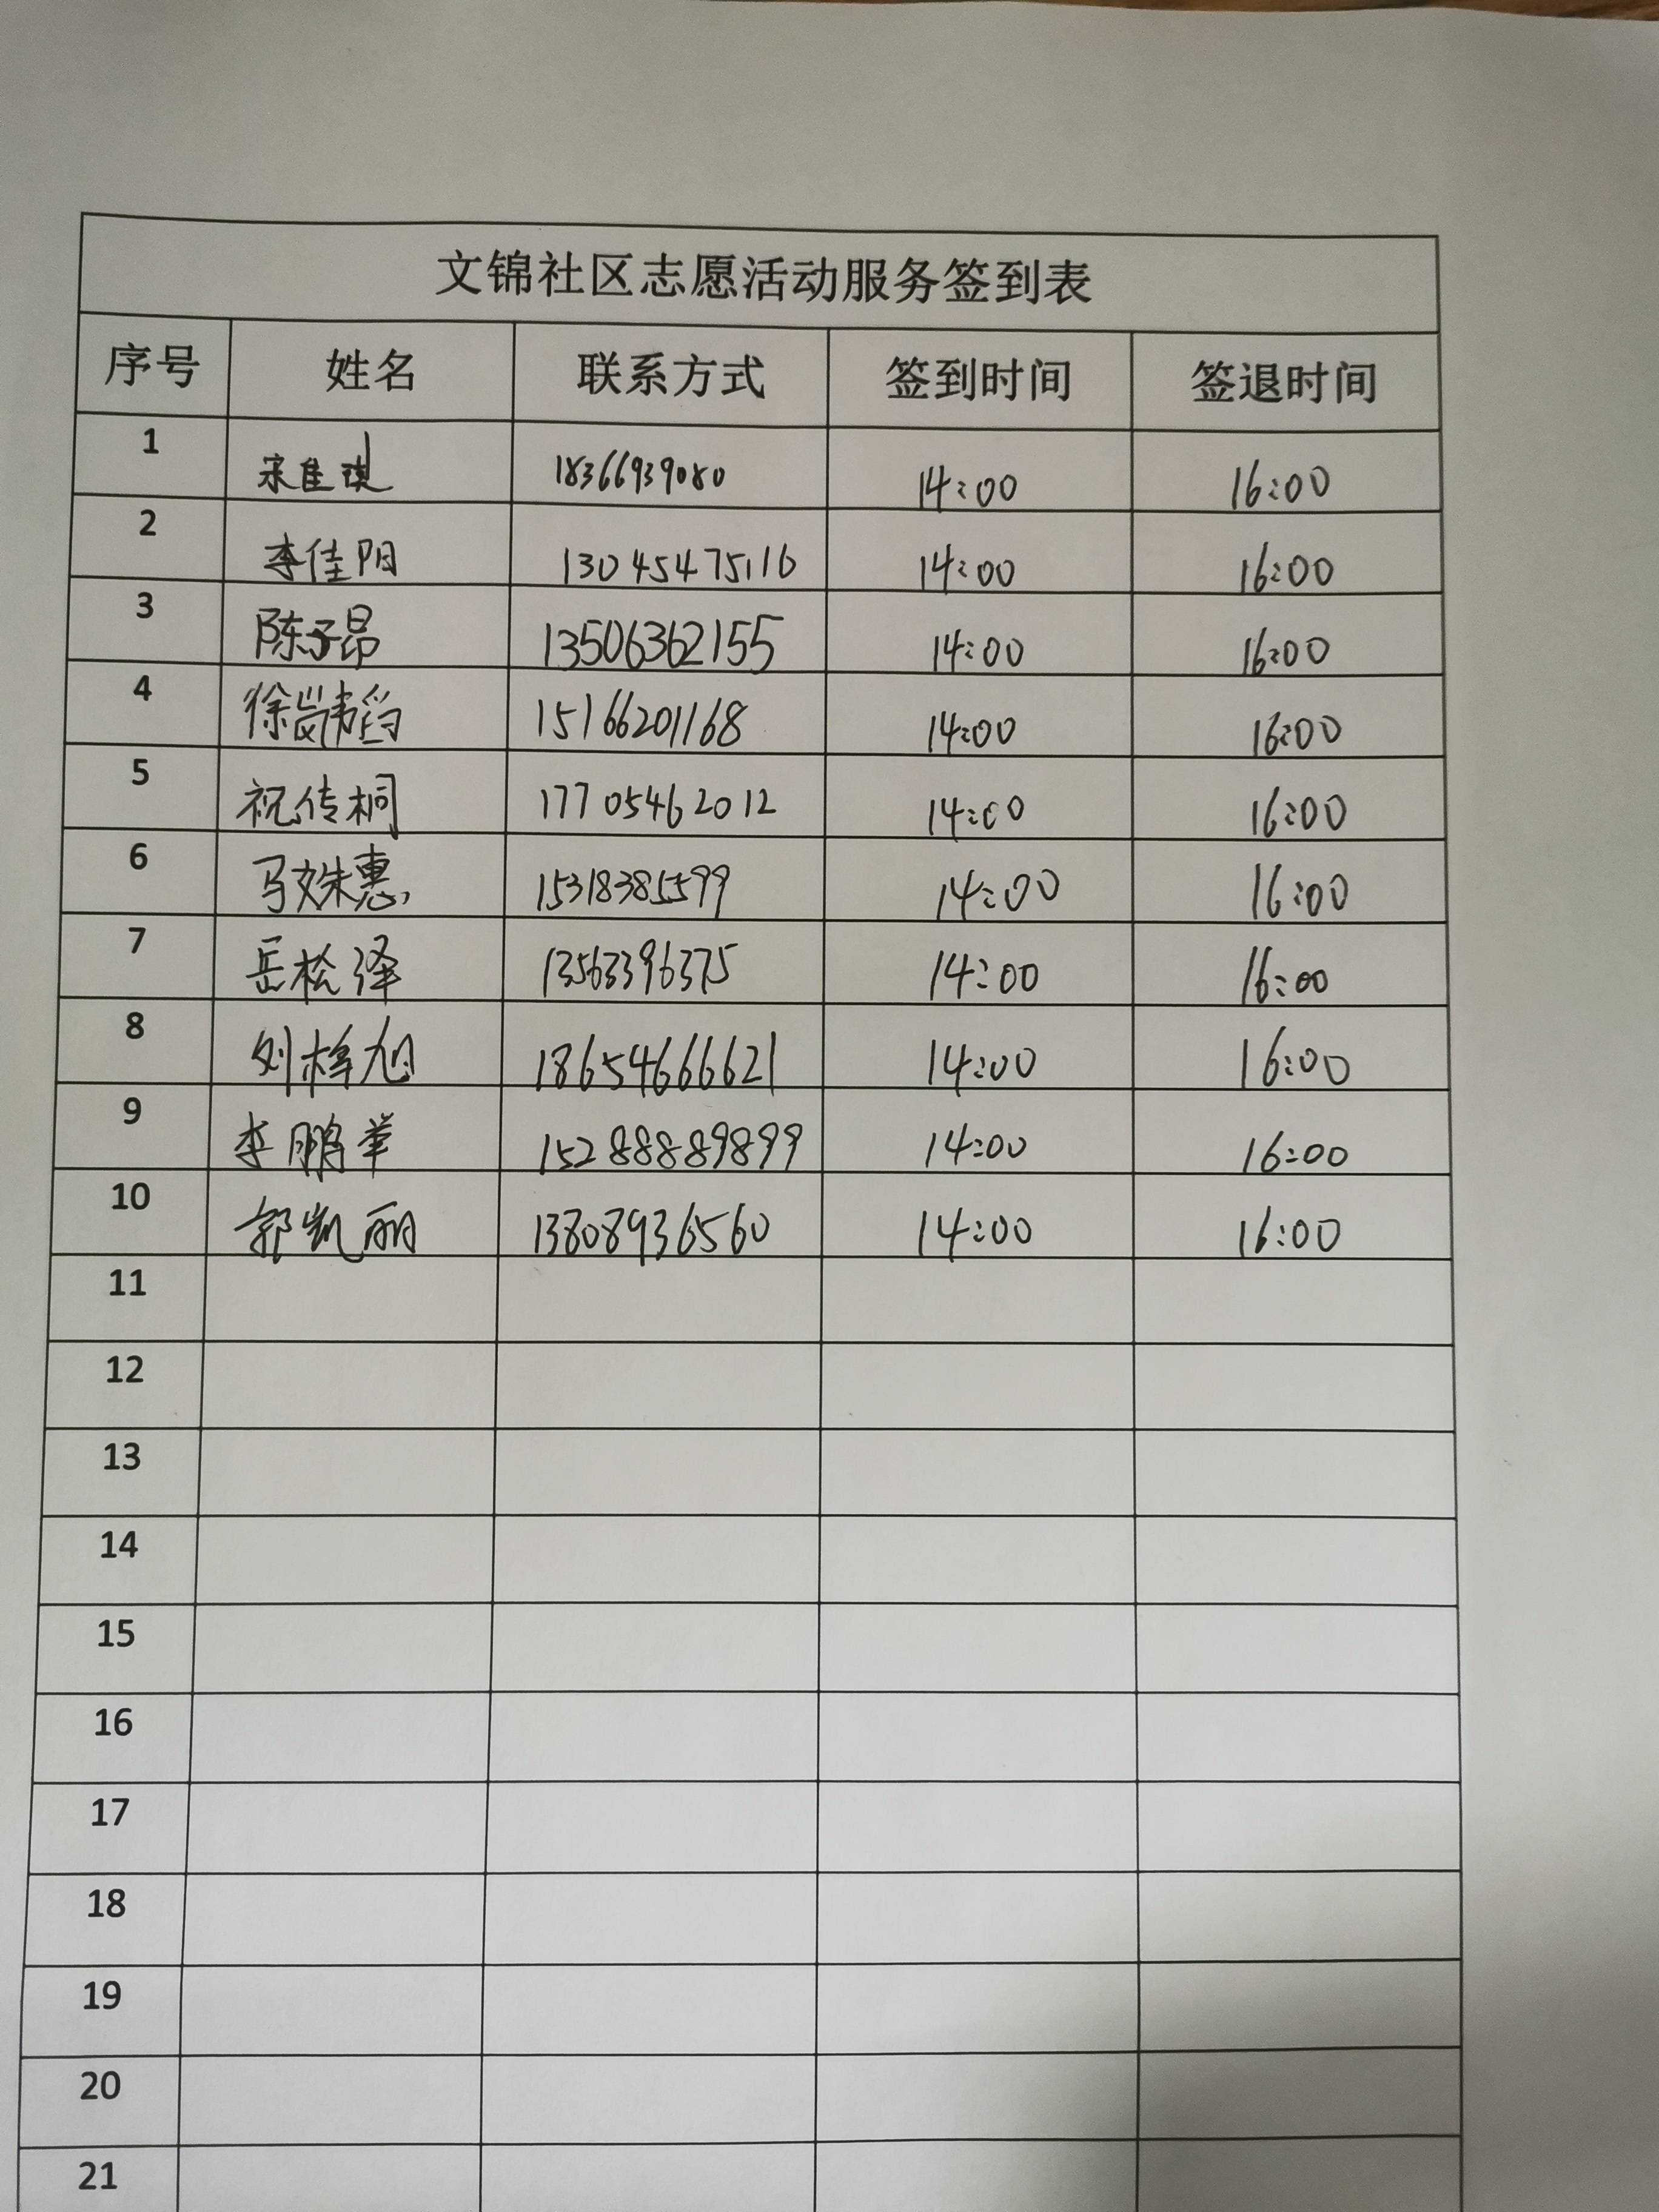 文锦社区志愿活动服务签到表
序号 姓名 联系方式 签到时间 签退时间
1 宋佳琪 18366939080 14:00 16:00
2 李佳阳 13045475116 14:00 16:00
3 陈子昂 13506362155 14:00 16:00
4 徐岚韬 15166201168 14:00 16:00
5 祝传桐 17705462012 14:00 16:00
6 马姝惠 15318385599 14:00 16:00
7 岳松泽 13563396375 14:00 16:00
8 刘梓旭 18654666621 14:00 16:00
9 李鹏举 15288889899 14:00 16:00
10 郭凯丽 13808936560 14:00 16:00
11
12
13
14
15
16
17
18
19
20
21